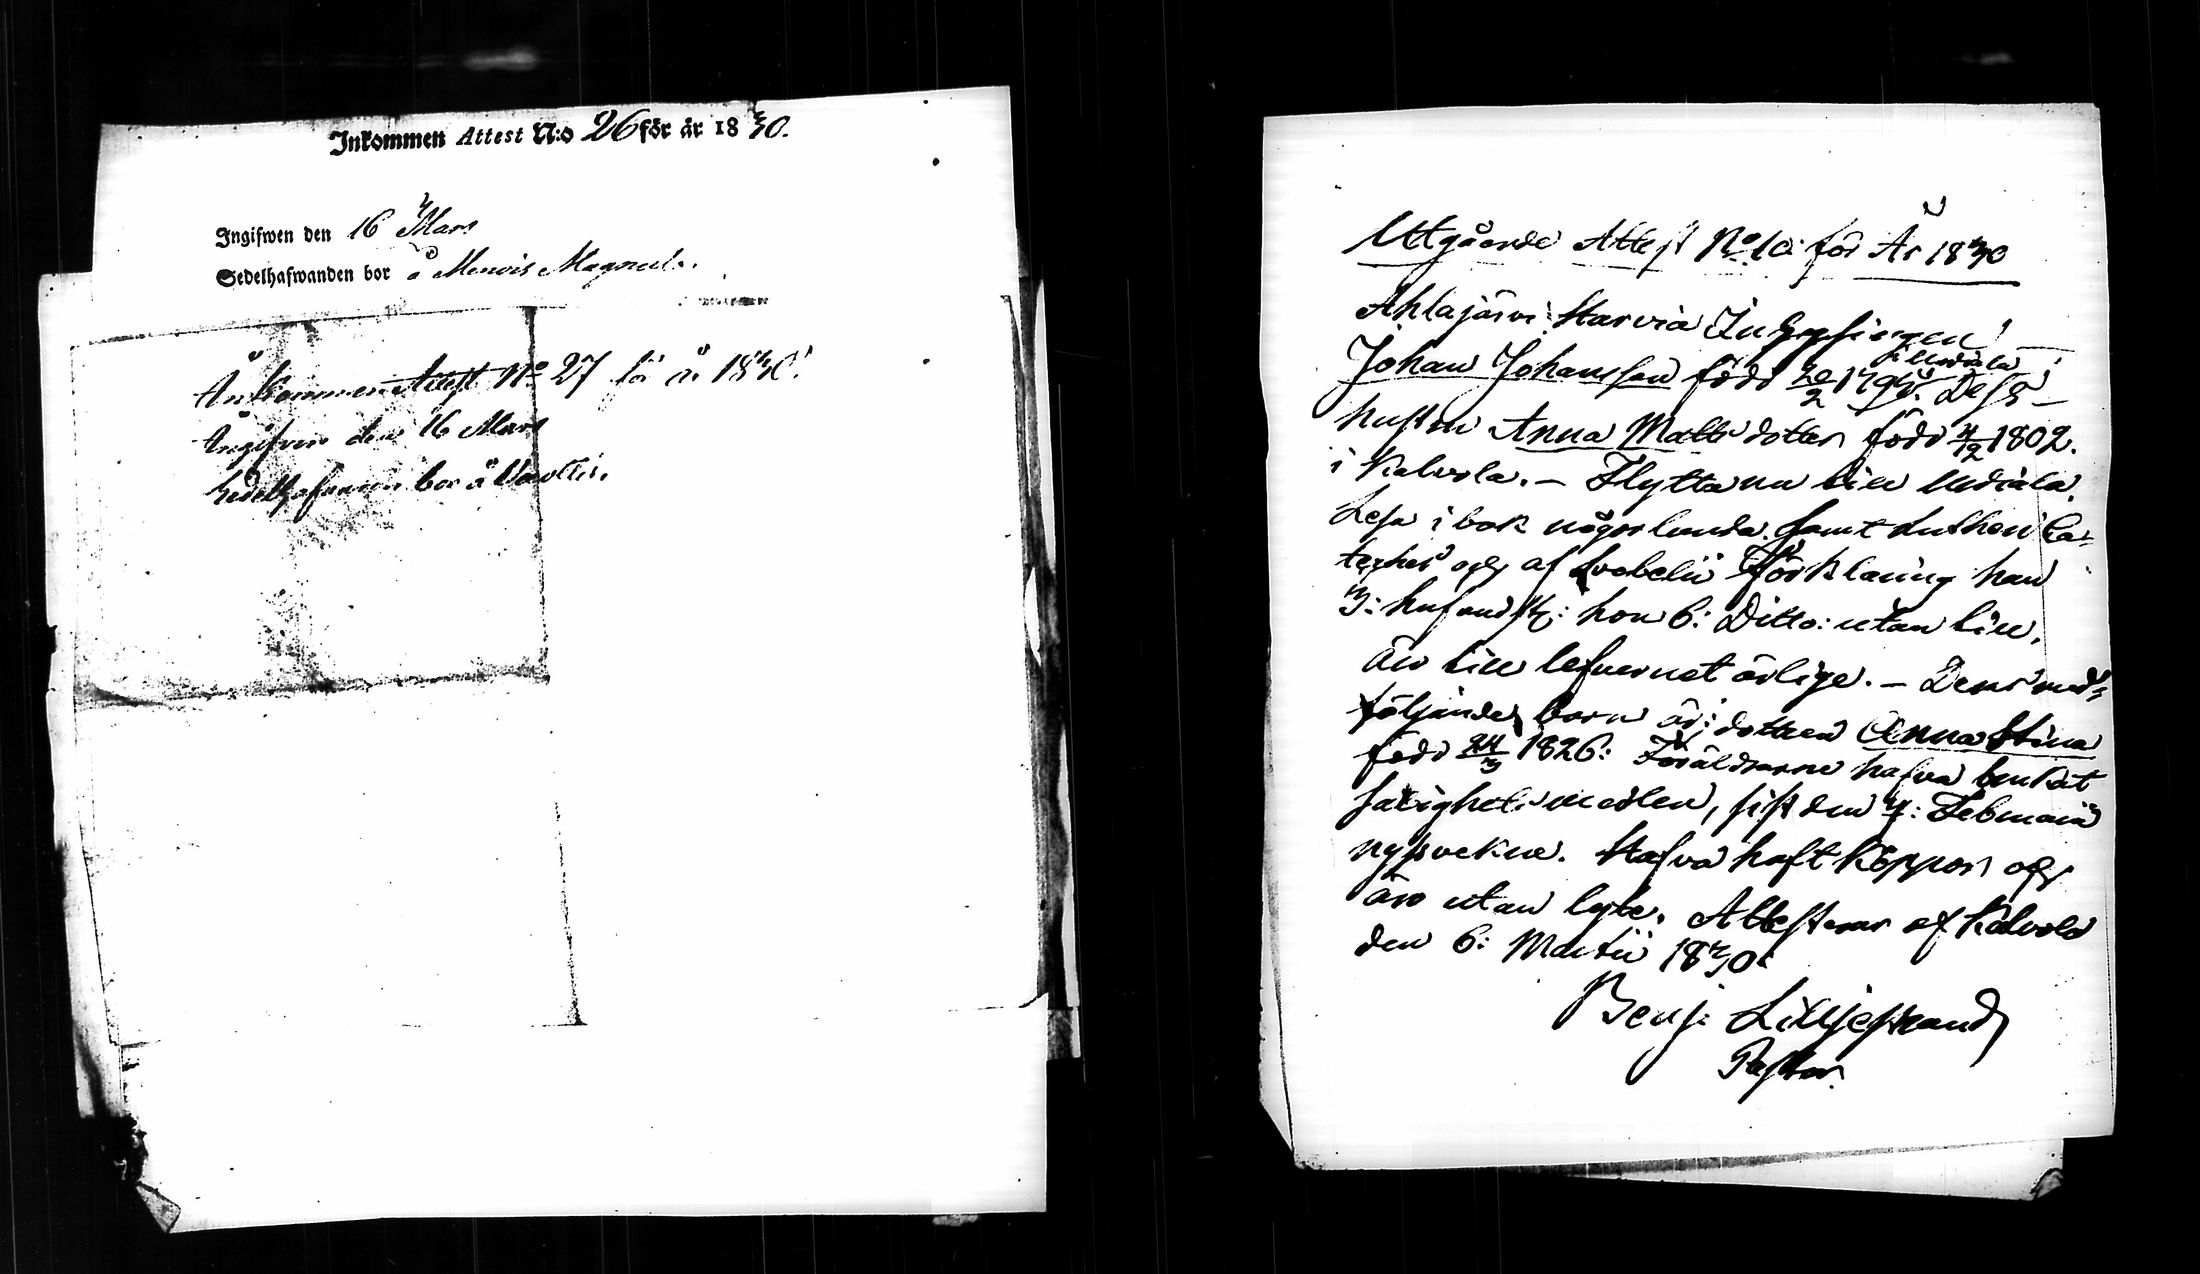 Inkommen Attest N:o 26 för år 1830.
Ingifwen den 16 Mars
Sedelhafwanden bor å Menois
Ankommen Attest No 27 för år 1830.
Angifven den 16 Mars
Sedelhafvaren bor å
Utgående Attest No 10: för År 1830
Ahlajärvi Starvia Inhysingen
Johan Johansson född 20/2 179 i Urdiala Dess
hustru Anna Matts dotter född 4/2 1802.
i Kalvola. – Flytta nu till Urdiala.
Läsa i bok någorlunda samt Lutheri Ca-
teches och af Svebelii Förklaring han
3: hufvudst: hon 6: Ditto: utan till,
äro till lefvernet ärlige. – Deras med-
följande barn är: dottren Anna Stina
född 24/3 1826: Föräldrarne hafva brukat
salighets medlen, sist den 7: Februarii
nyssvekne. Hafva haft Koppor och
äro utan lyte. Attesterar af Kalvola
den 6: Martii 1830.
Benj: Lilljestrand
Pastor.